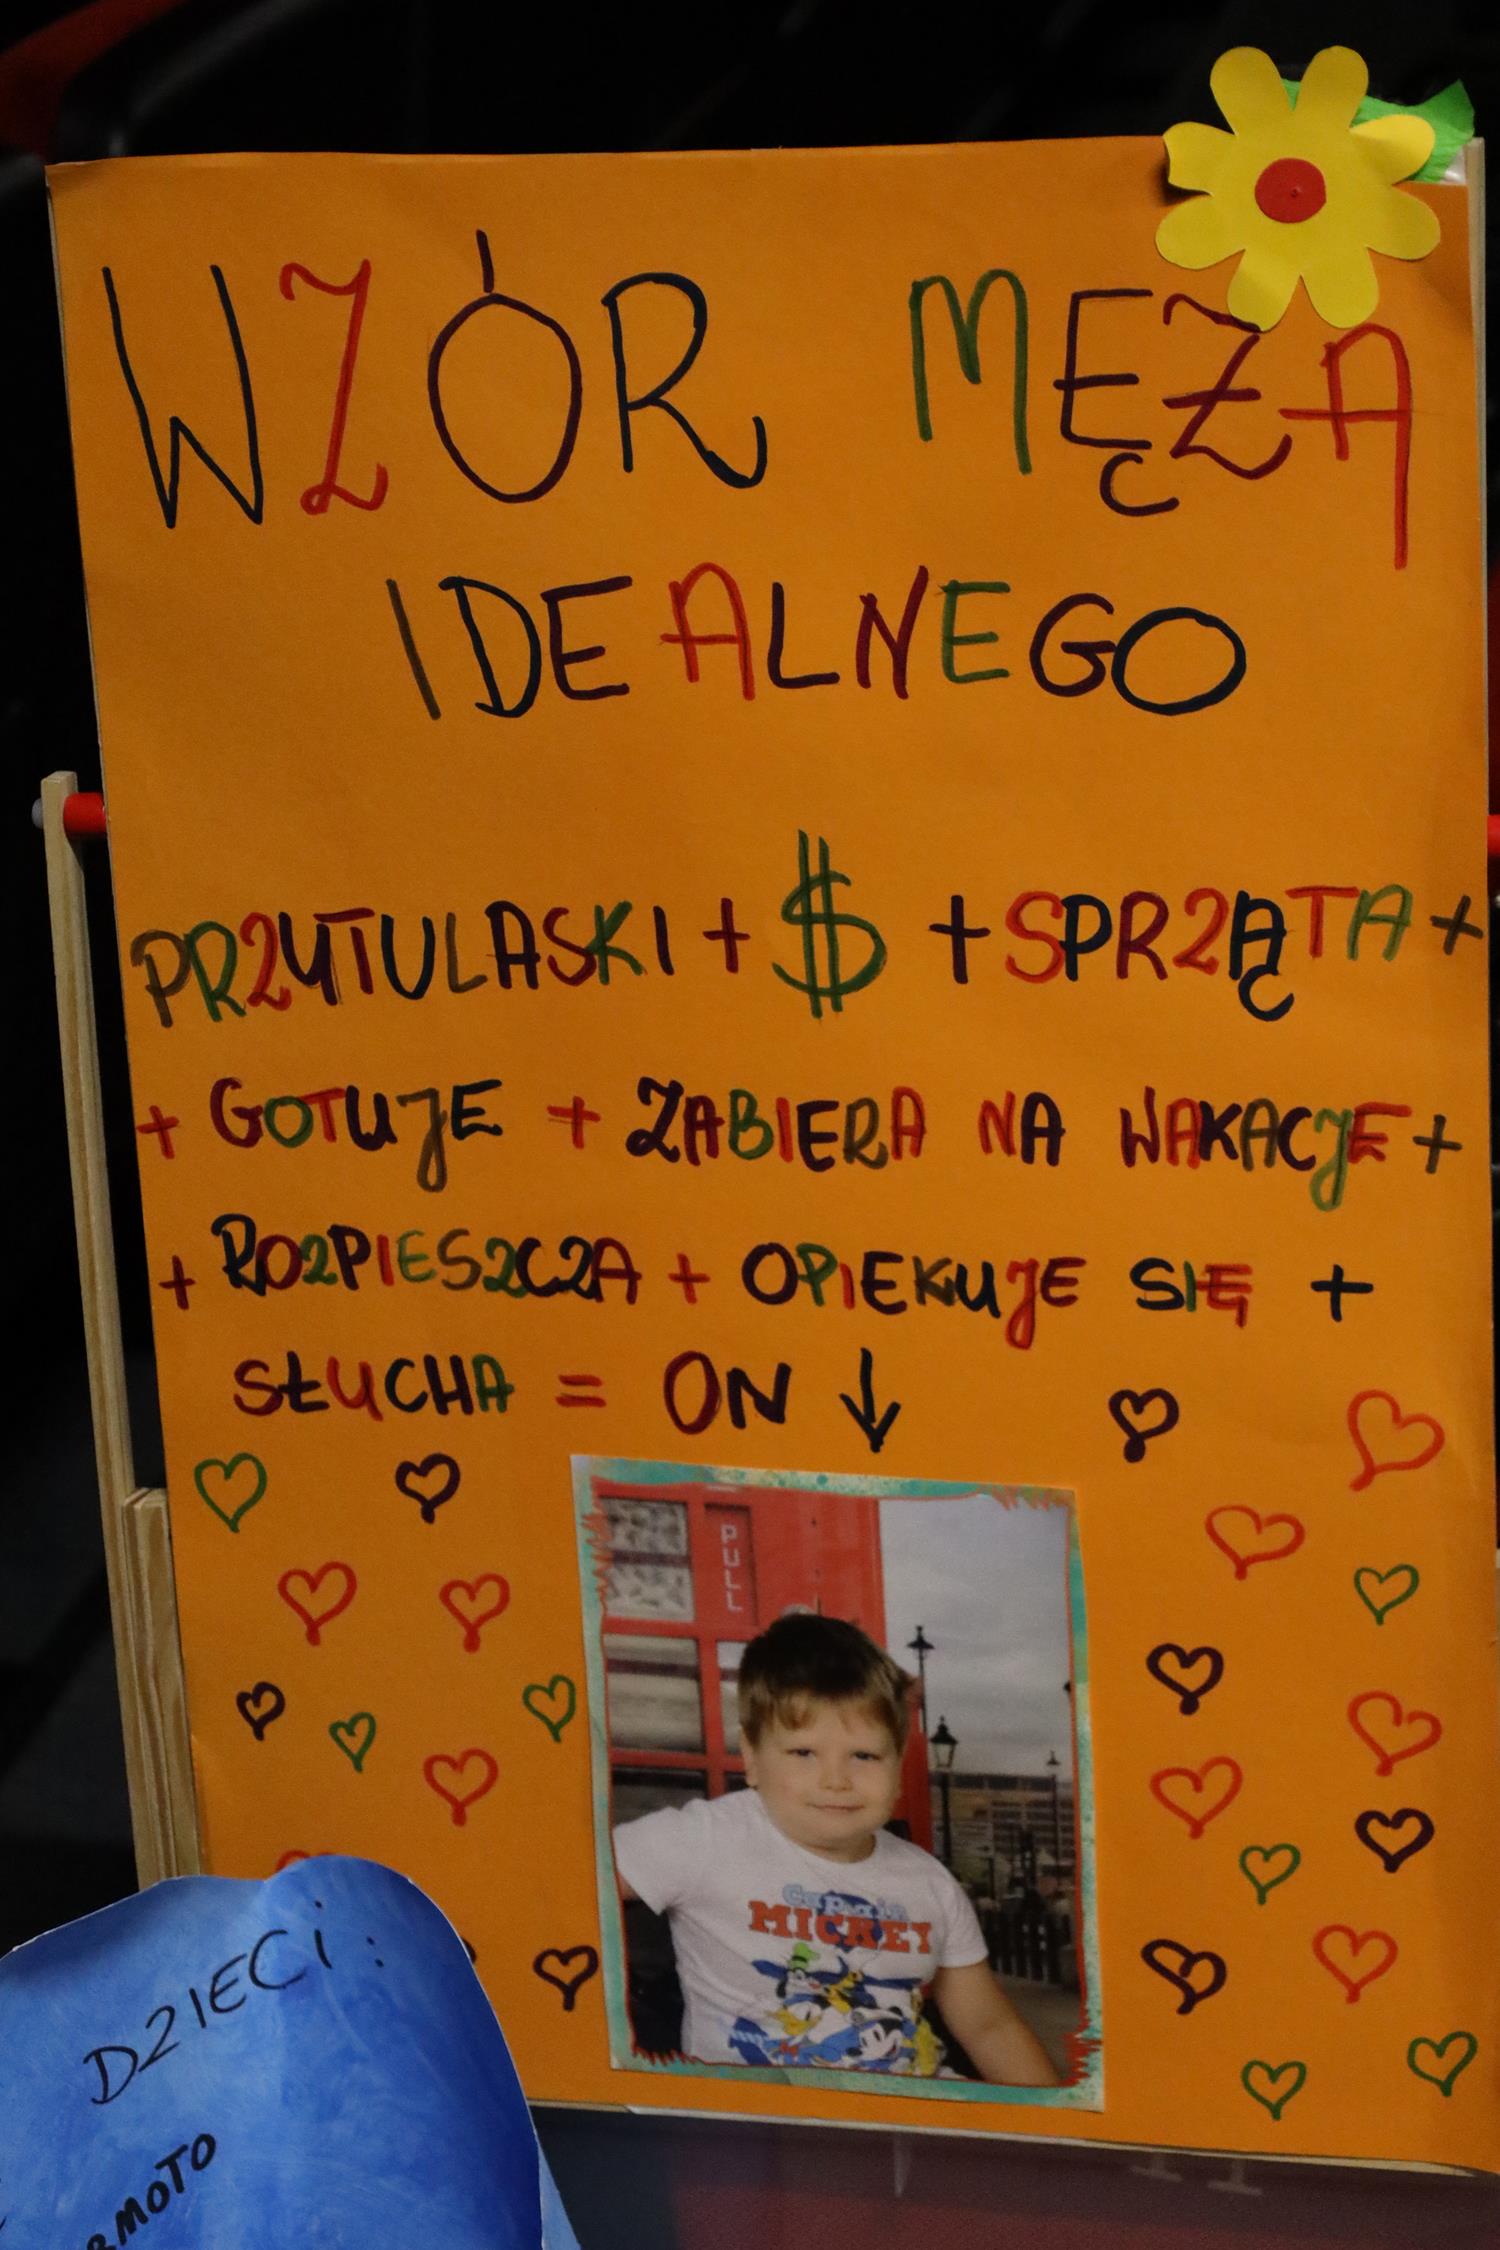 WZÓR MĘŻA
IDEALNEGO
PRZYTULASKI + $ + SPRZĄTA +
+ GOTUJE + ZABIERA NA WAKACJE +
+ ROZPIESZCZA + OPIEKUJE SIĘ +
SŁUCHA = ON ↓
PULL
Captain
MICKEY
DZIECI: